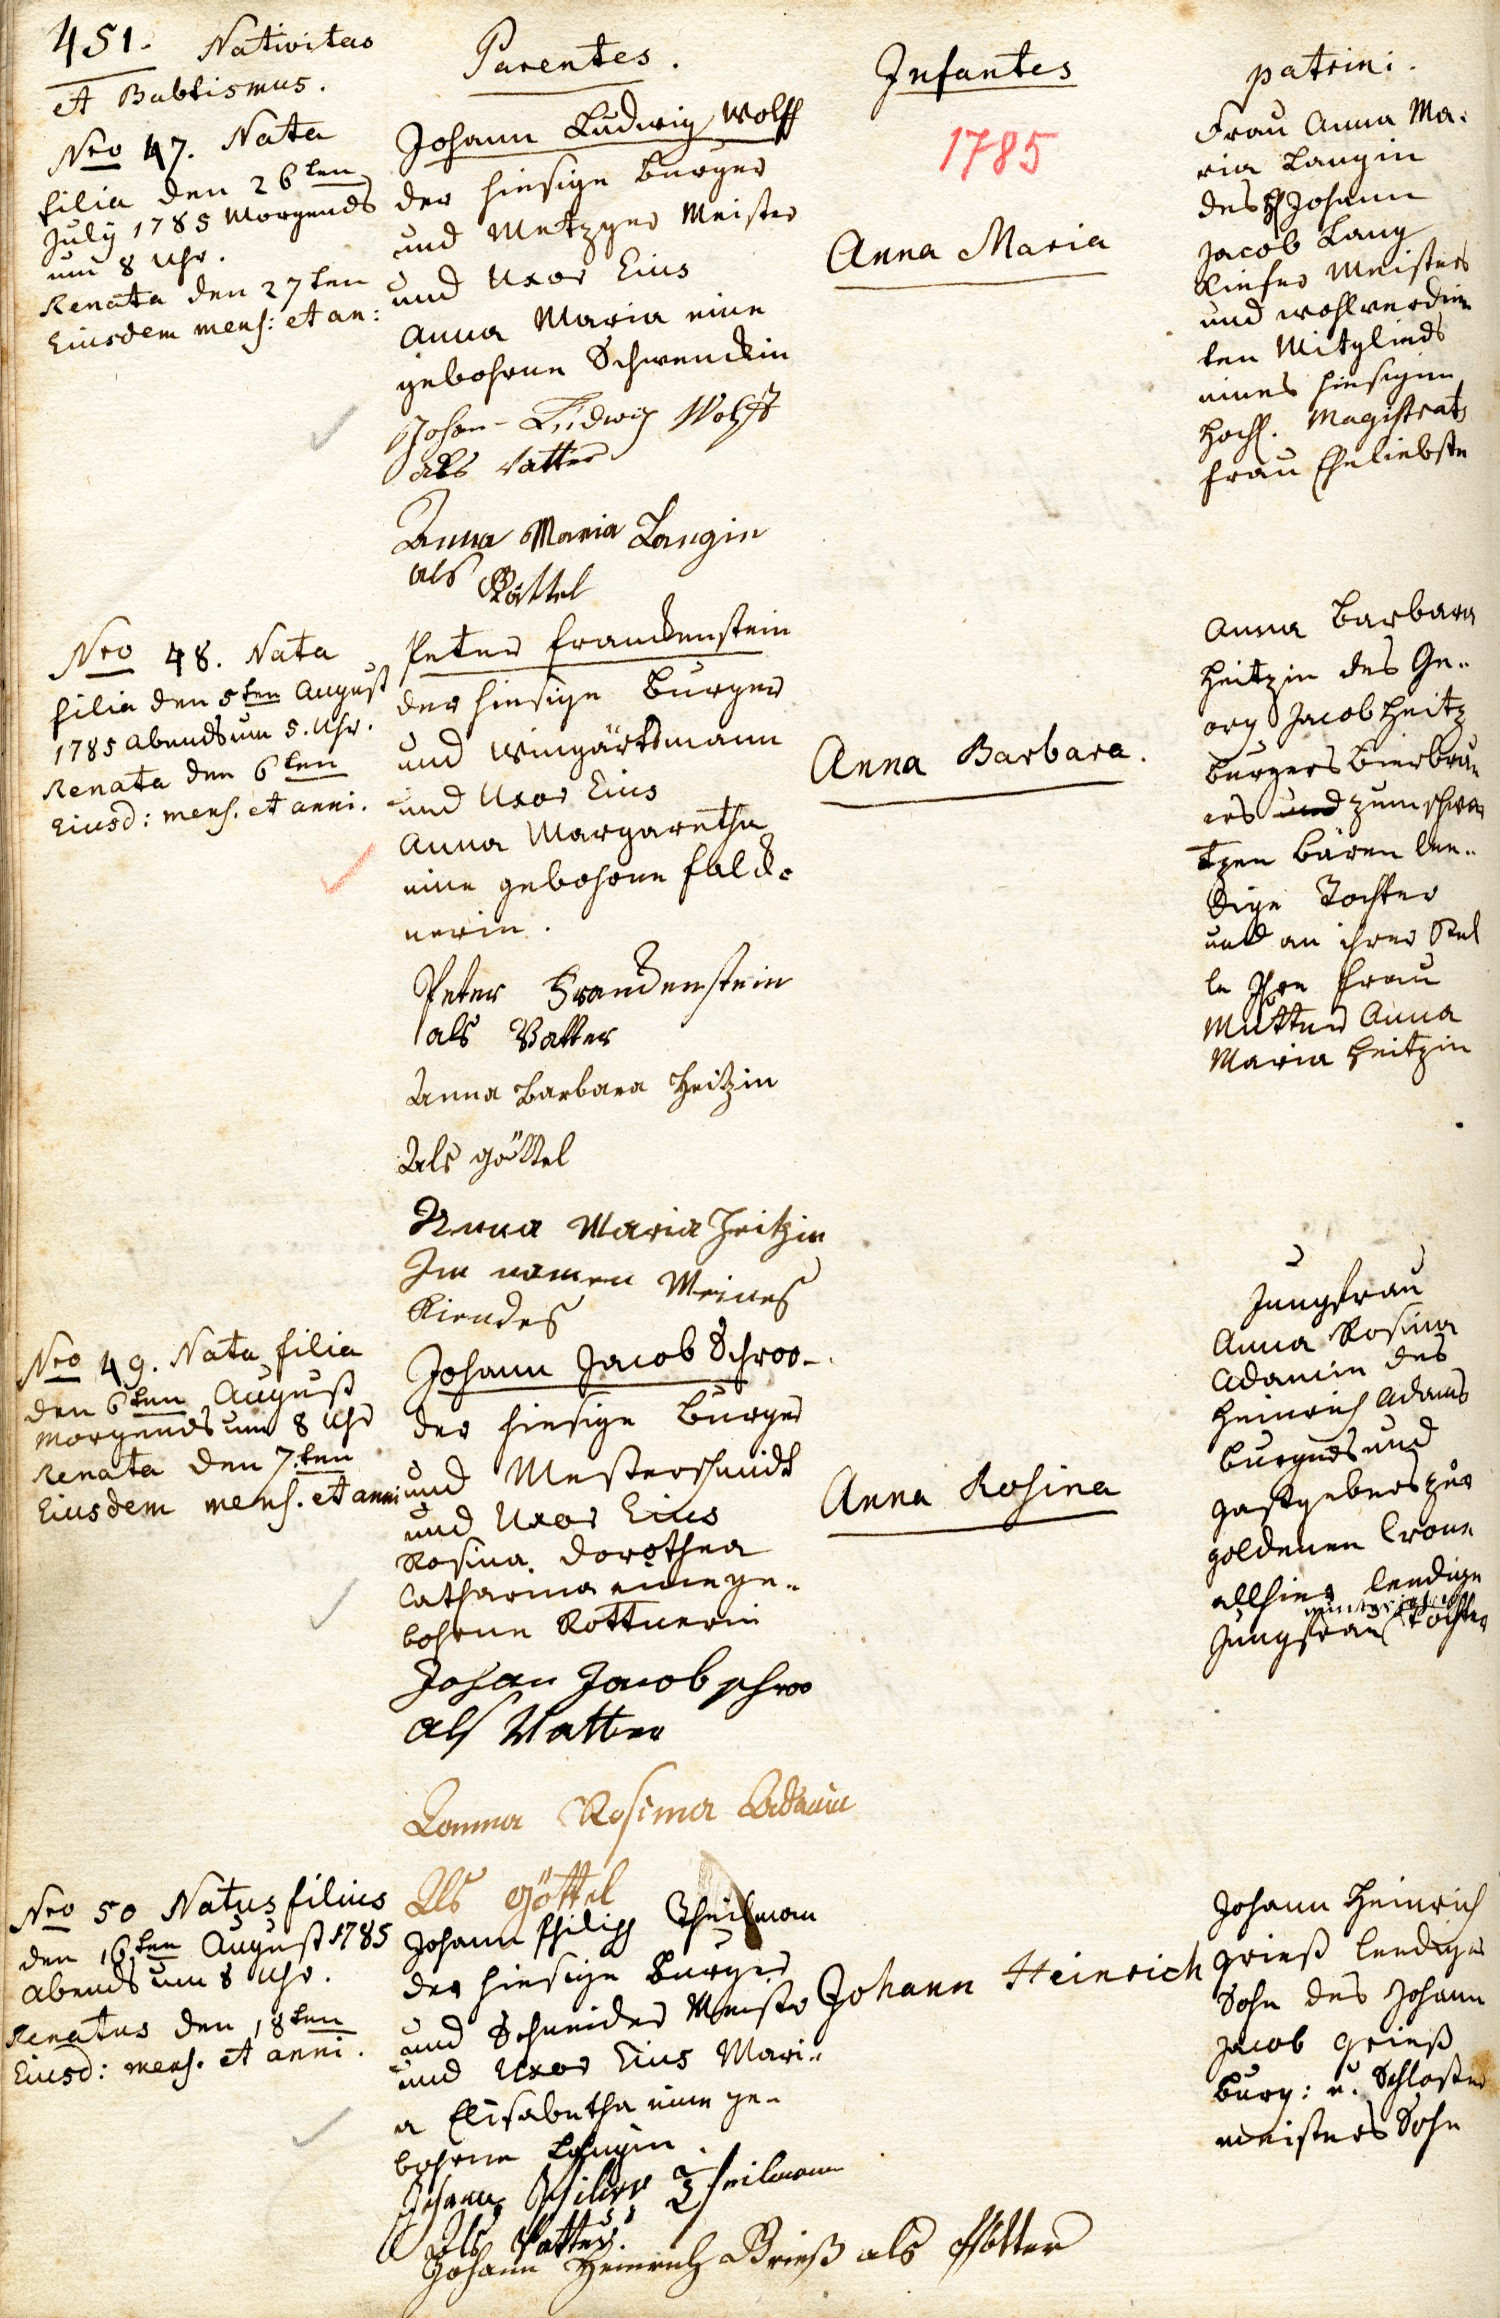 451. Nativitas
et Babtismus.
Parentes.
Infantes
patrini.
1785
Nro 47. Nata
filia den 26ten
July 1785 Morgends
um 8 Uhr.
Renata den 27ten
Eiusdem mens: et an:
Johann Ludwig Wolff
der hiesige Burger
und Metzger Meister
und Uxor Eius
Anna Maria eine
gebohrne Schwenckin
Johan Ludwig Wolff
als Vatter
Anna Maria Langin
als Göttel
Anna Maria
Frau Anna Ma:
ria Langin
des H Johann
Jacob Lang
Kiefer Meisters
und wohlverdien
ten Mitglieds
eines hiesigen
Hochl. Magistrats
Frau Eheliebste
Nro 48. Nata
filia den 5ten August
1785 abends um 5. Uhr.
Renata den 6ten
Eiusd: mens. et anni.
Peter Franckenstein
der hiesige Burger
und Wingärtsmann
und Uxor Eius
Anna Margaretha
eine gebohrne Falck=
nerin.
Peter Franckenstein
als Vatter
Anna Barbara Heitzin
Als göttel
Anna Maria Heitzin
Im namen Meines
Kiendes
Anna Barbara.
Anna Barbara
Heitzin des Ge=
org Jacob Heitz
Burgers Bierbrau
ers und zum schwar
tzen Bären lee=
dige Tochter
und an ihrer Stel
le Ihre Frau
Mutter Anna
Maria Heitzin
Nro 49. Nata filia
den 6ten August
Morgends um 8 Uhr
Renata den 7.ten
Eiusdem mens. et anni
Johann Jacob Schroo
der hiesige Burger
und Messerschmidt
und Uxor Eius
Rosina Dorothea
Catharina eine ge=
bohrne Rottnerin
Johan Jacob schroo
als Vatter
Anna Rosina Adamin
Als göttel
Anna Rosina
Jungfrau
Anna Rosina
Adamin des
Heinrich Adams
Burgers und
gastgebers zur
goldenen Cron
allhier leedige
Jungfrau Tochter
Nro 50 Natus filius
den 16ten August 1785
abends um 8 Uhr.
Renatus den 18ten
Eiusd: mens. et anni.
Johann Philipp Theilman
der hiesige Burger
und Schneider Meister
und Uxor Eius Mari=
a Elisabetha eine ge=
bohrne
Johann Philipp Theilmann
Als Vatter.
Johann Heinrich Grieß als Pfötter
Johann Heinrich
Johann Heinrich
Grieß leediger
Sohn des Johann
Jacob Grieß
Burg: u. Schlosser
meisters Sohn